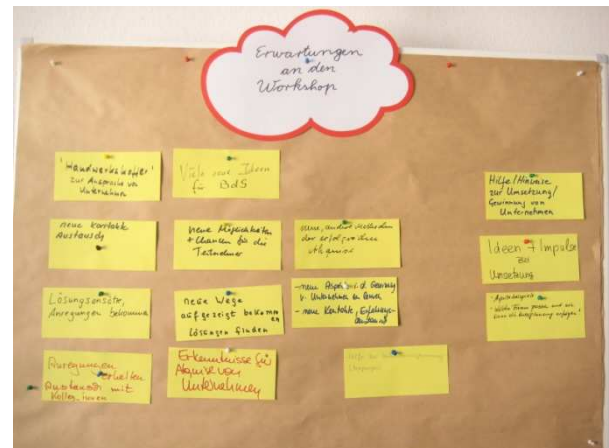 Erwartungen
an den
Workshop
"Handwerkskoffer"
zur Ansprache von
Unternehmen
Viele neue Ideen
für BdS
Hilfe/Hinweise
zur Umsetzung/
Gewinnung von
Unternehmen
neue Kontakte
Austausch
neue Möglichkeiten
+ Chancen für die
Teilnehmer
neue, andere Methoden
der erfolgreichen
Akquise
Ideen + Impulse
zur
Umsetzung
Lösungsansätze,
Anregungen bekommen
neue Wege
aufgezeigt bekommen
Lösungen finden
- neue Aspekte i. d. Gewinnung
v. Unternehmen
- neue Kontakte, Erfahrungs-
austausch
Anregungen
erhalten
Austausch mit
Kolleg.innen
Erkenntnisse für
Akquise von
Unternehmen